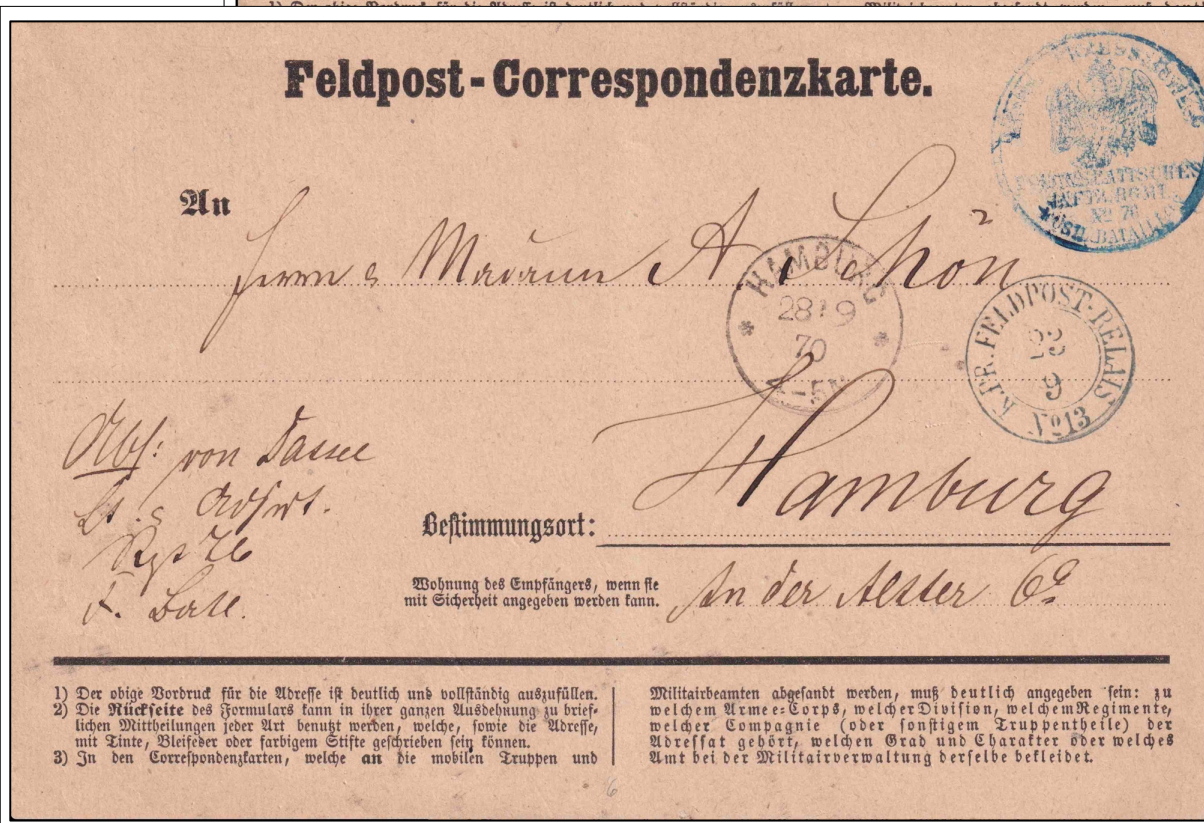 1) Der obige Vordruck für die Adresse ist deutlich und vollständig auszufüllen. Militairbeamten abgesandt werden, muß deutlich
Feldpost-Correspondenzkarte.
INFTR. RGMT.
No 76
An
Herrn & Madame A. Schön
HAMBURG
28 9
70
K.PR. FELDPOST-RELAIS
23
9
No 13
Abs: von Sassee
Lt. & Adjut.
Rgt 76
F. Batl.
Hamburg
Bestimmungsort:
Wohnung des Empfängers, wenn sie
mit Sicherheit angegeben werden kann.
An der Alster 6
1) Der obige Vordruck für die Adresse ist deutlich und vollständig auszufüllen.
2) Die Rückseite des Formulars kann in ihrer ganzen Ausdehnung zu brief-
lichen Mittheilungen jeder Art benutzt werden, welche, sowie die Adresse,
mit Tinte, Bleifeder oder farbigem Stifte geschrieben sein können.
3) In den Correspondenzkarten, welche an die mobilen Truppen und
Militairbeamten abgesandt werden, muß deutlich angegeben sein: zu
welchem Armee-Corps, welcher Division, welchem Regimente,
welcher Compagnie (oder sonstigem Truppentheile) der
Adressat gehört, welchen Grad und Charakter oder welches
Amt bei der Militairverwaltung derselbe bekleidet.
6